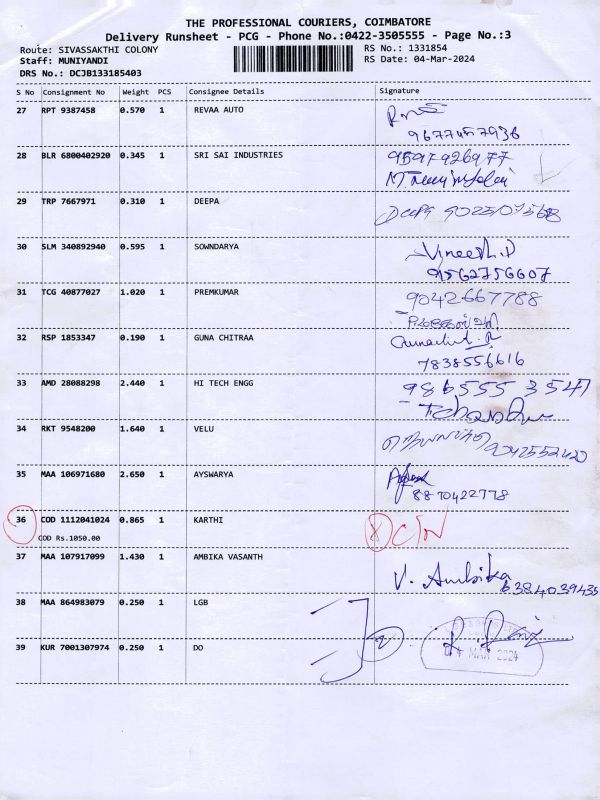 THE PROFESSIONAL COURIERS, COIMBATORE
Delivery Runsheet - PCG - Phone No.:0422-3505555 - Page No.:3
Route: SIVASSAKTHI COLONY RS No.: 1331854
Staff: MUNIYANDI RS Date: 04-Mar-2024
DRS No.: DCJB133185403
S No Consignment No Weight PCS Consignee Details Signature
27 RPT 9387458 0.570 1 REVAA AUTO
9677457936
28 BLR 6800402920 0.345 1 SRI SAI INDUSTRIES 9597926977
29 TRP 7667971 0.310 1 DEEPA Deepa
30 SLM 340892940 0.595 1 SOWNDARYA Vineesh.P
9562756607
31 TCG 40877027 1.020 1 PREMKUMAR 9042667788
32 RSP 1853347 0.190 1 GUNA CHITRAA
7838556616
33 AMD 28088298 2.440 1 HI TECH ENGG 986555 3547
34 RKT 9548200 1.640 1 VELU 9042552420
35 MAA 106971680 2.650 1 AYSWARYA
8870422778
36 COD 1112041024 0.865 1 KARTHI
COD Rs.1050.00
37 MAA 107917099 1.430 1 AMBIKA VASANTH V. Ambika
6384039435
38 MAA 864983079 0.250 1 LGB
2
39 KUR 7001307974 0.250 1 DO
MAR 2024